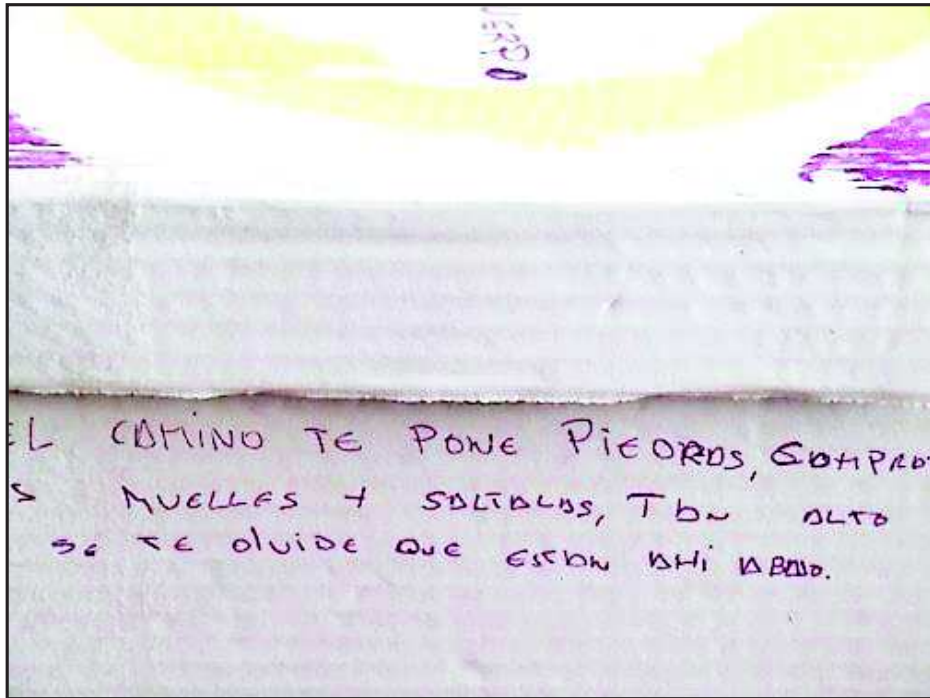 EL CAMINO TE PONE PIEDRAS, COMPRA
S MUELLES Y SALTALAS, TAN ALTO
SE TE OLVIDE QUE ESTAN AHI ABAJO.